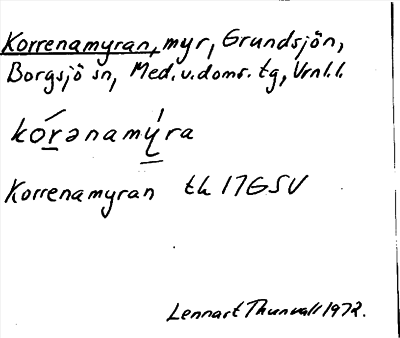 Korrenamyran, myr, Grundsjön,
Borgsjö sn, Med. v. doms. tg, Vrnl. l.
kórənamýra
Korrenamyran tk 17G SV
Lennart Thunvall 1972.